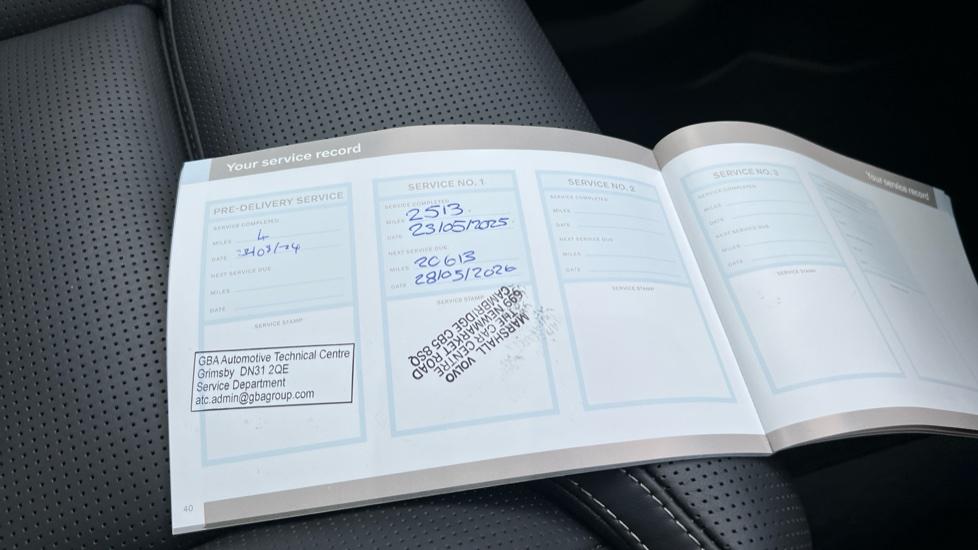 Your service record
PRE-DELIVERY SERVICE
SERVICE COMPLETED
MILES 4
DATE
NEXT SERVICE DUE
MILES
DATE
SERVICE STAMP
GBA Automotive Technical Centre
Grimsby DN31 2QE
Service Department
atc.admin@gbagroup.com
40
SERVICE NO. 1
SERVICE COMPLETED
MILES 2513
DATE 23/05/2025
NEXT SERVICE DUE
MILES 20613
DATE 28/05/2026
SERVICE STAMP
MARSHALL VOLVO
THE CAR CENTRE
699 NEWMARKET ROAD
CAMBRIDGE CB5 8SQ
SERVICE NO. 2
SERVICE COMPLETED
MILES
DATE
NEXT SERVICE DUE
MILES
DATE
SERVICE STAMP
Your service record
SERVICE NO. 3
SERVICE COMPLETED
MILES
DATE
NEXT SERVICE DUE
MILES
DATE
SERVICE STAMP